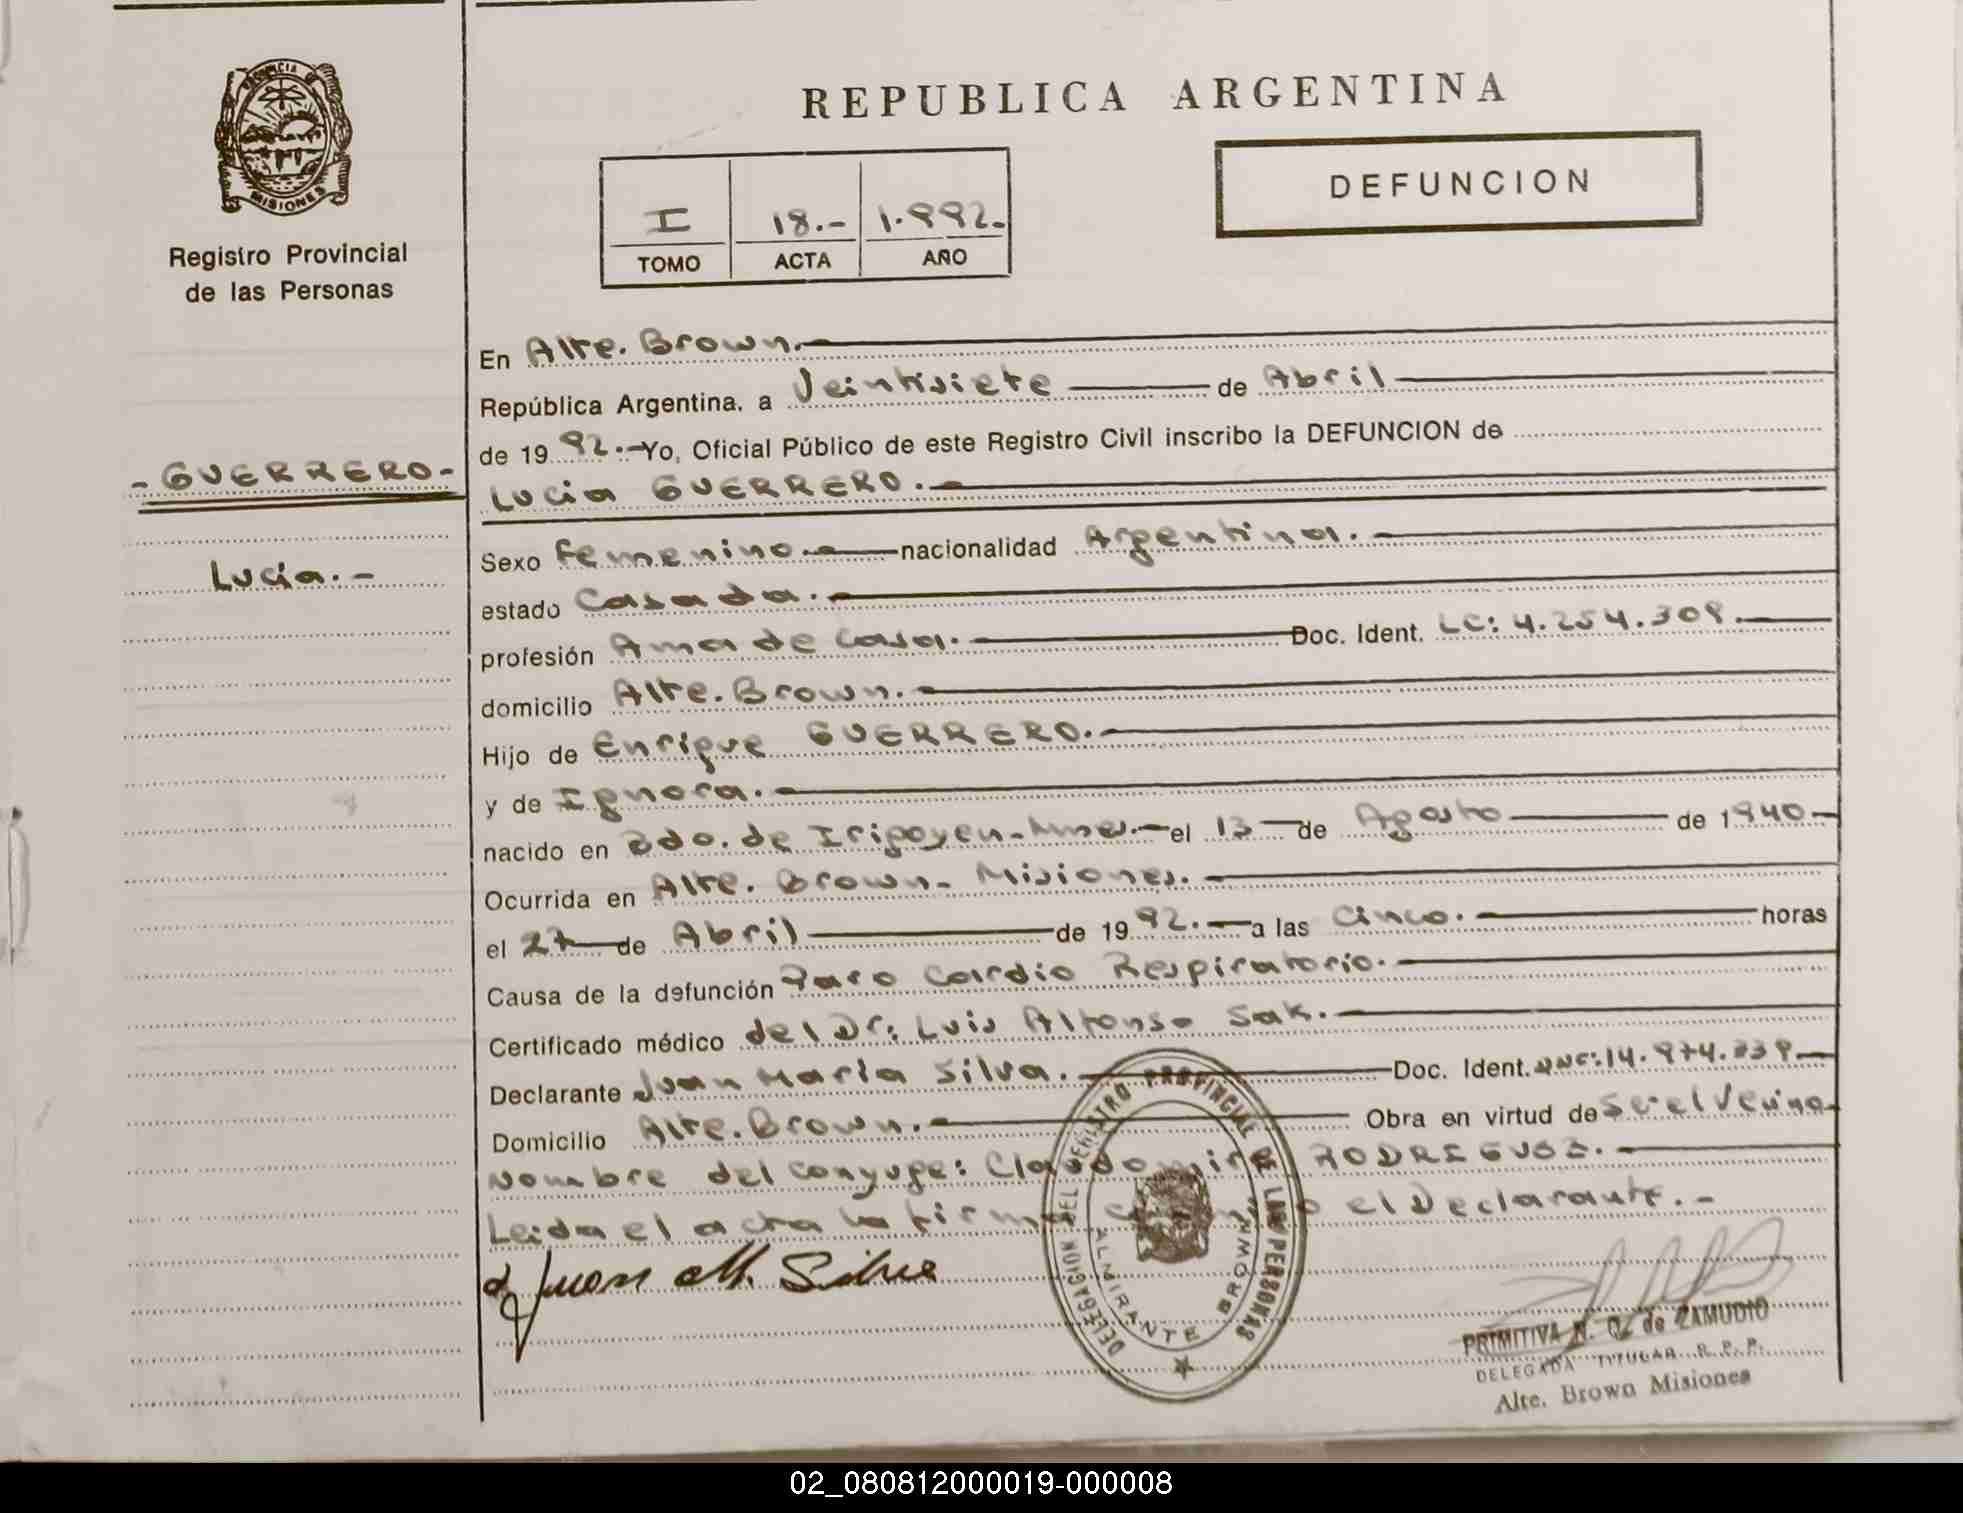 PROVINCIA DE
MISIONES
Registro Provincial
de las Personas
- GUERRERO -
Lucia.-
REPUBLICA ARGENTINA
DEFUNCION
I 18.- 1.992.-
TOMO ACTA AÑO
En Alte. Brown.
República Argentina, a Veintisiete de Abril
de 1992.- Yo, Oficial Público de este Registro Civil inscribo la DEFUNCION de
Lucia GUERRERO.-
Sexo Femenino.- nacionalidad Argentina.-
estado Casada.-
profesión Ama de Casa.- Doc. Ident. LC: 4.254.309.-
domicilio Alte. Brown.-
Hijo de Enrique GUERRERO.-
y de Ignora.-
nacido en Bdo. de Irigoyen-Mnes.- el 13 de Agosto de 1940-
Ocurrida en Alte. Brown- Misiones.-
el 27 de Abril de 1992.- a las Cinco.- horas
Causa de la defunción Paro Cardio Respiratorio.-
Certificado médico del Dr: Luis Alfonso Sak.-
Declarante Juan Maria Silva.- Doc. Ident. 14.974.339.-
Domicilio Alte. Brown.- Obra en virtud de Ser el Vecino-
Nombre del conyuge: Claudomiro RODRIGUES.-
Leida el acta la firma el Declarante.-
Juan M. Silva
DELEGACION DEL REGISTRO PROVINCIAL DE LAS PERSONAS
ALMIRANTE BROWN
PRIMITIVA N. de ZAMUDIO
DELEGADA TITULAR R. P. P.
Alte. Brown Misiones
02_080812000019-000008